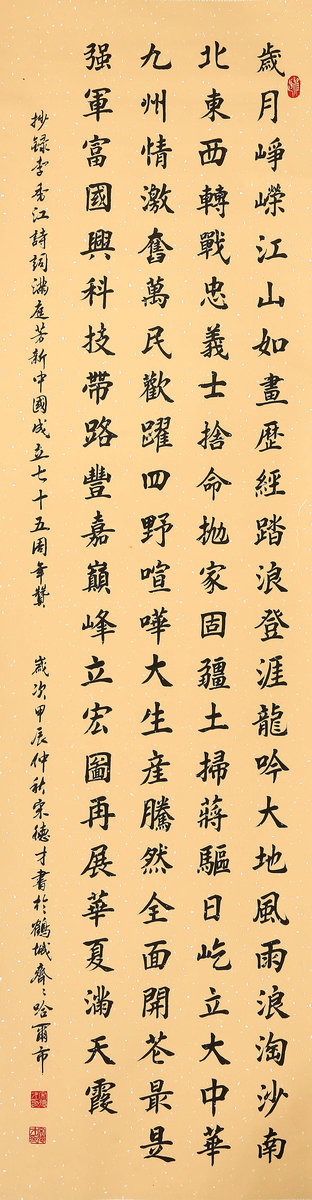 歲月崢嶸江山如畫歷經踏浪登涯龍吟大地風雨浪淘沙南
北東西轉戰忠義士捨命拋家固疆土掃蔣驅日屹立大中華
九州情激奮萬民歡躍四野喧嘩大生産騰然全面開花最是
强軍富國興科技帶路豐嘉巔峰立宏圖再展華夏滿天霞
抄録李秀江詩詞滿庭芳新中國成立七十五周年贊 歲次甲辰仲秋宋德才書於鶴城齊齊哈爾市